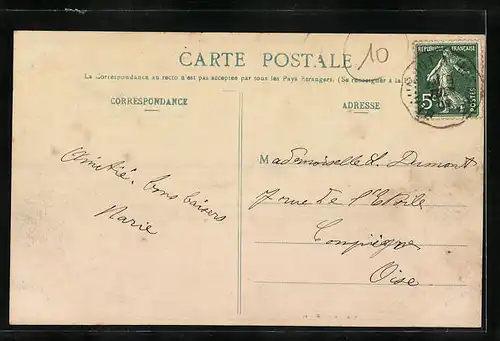 CARTE POSTALE
10
La Correspondance au recto n'est pas acceptée par tous les Pays Étrangers. (Se renseigner à la P
CORRESPONDANCE
ADRESSE
RÉPUBLIQUE FRANÇAISE
5c
POSTES
Amitié, bons baisers
Marie
Mademoiselle H. Dumont
7 rue de l'Etoile
Compiègne
Oise